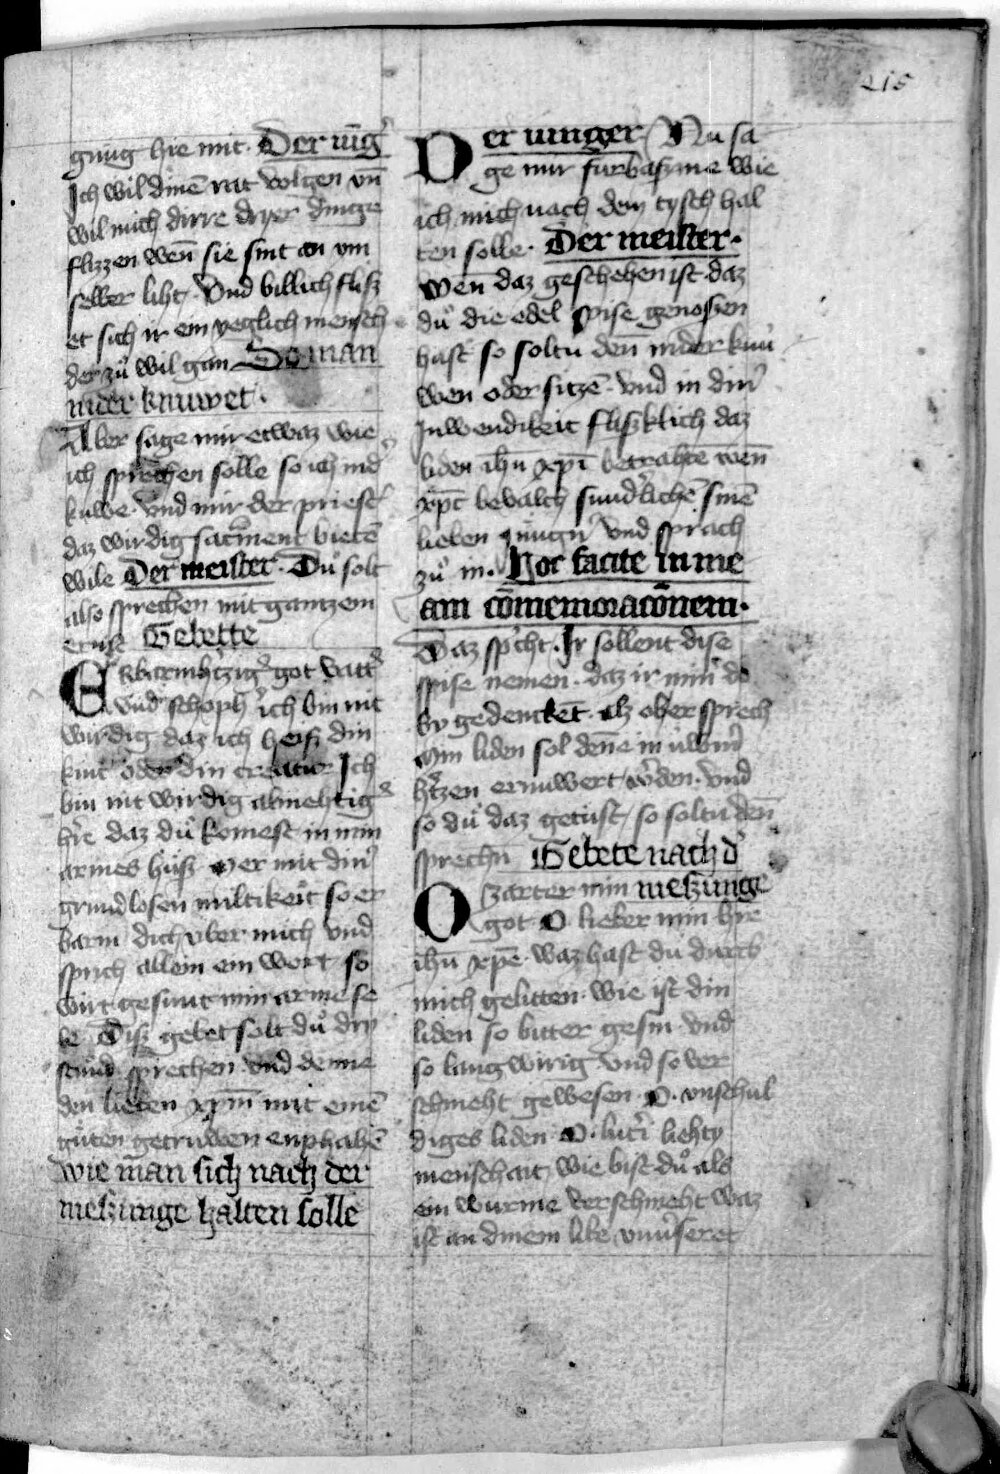 215
gnug hie mit. Der iu̅g᷑
Ich wil dine̅ rat volgen vn̅
wil mich dirre dryer dinge
flizzen wen̅ sie sint an vm
selber liht. Vnd billich flisz
et sich ir ein yeglich mensch
der zuͦ wil gan So man
nider knuwet.
Aber sage mir etwaz wie
ich sprechen solle so ich nid᷑
knwe. vnd mir der priest᷑
daz wirdig sacr̅ment biete̅
wile Der meister. Duͦ solt
also sprechen mit gantzem
ernst Gebette
Erbarmh᷑tzig᷑ got vatt᷑
vnd schoph᷑ ich bin nit
wirdig daz ich heisz din
kint oder din creatur Ich
bin nit wirdig almehtig᷑
h᷑re daz duͦ komest in min
armes husz. Mer mit din᷑
grundlosen miltikeit so er
barm dich vber mich vnd
sprich allein ein wort so
wirt gesunt min arme se
le Disz gebet solt duͦ dry
stund sprechen vnd denne
den lieben xpm̅ mit eine̅
guͦten getruwen enphahe̅
wie man sich nach der
nieszunge halten solle
Der iunger Nu sa
ge mir furbaszme wie
ich mich nach dem tysch hal
ten solle. Der meister.
Wen̅ daz geschehen ist daz
duͦ die edel spise genossen
hast so soltu den̅ nider knu
wen oder sitze̅. vnd in din᷑
Inwendikeit fliszklich daz
liden ih̅u xpi̅ betrahte̅ wen̅
xpc̅ bevalch sund᷑liche̅ sine̅
lieben iung᷑n vnd sprach
zuͦ in. Hoc facite in me
am co̅memoraco̅nem.
Daz sp᷑cht. Ir sollent dise
spise nemen. daz ir min do
by gedencke̅t. Alz ob er sprech
Min liden sol denne in uwern
h᷑tzen ernuwert w᷑den. Vnd
so duͦ daz getust, so soltu den̅
sprechn̅ Gebete nach d᷑
O zarter min nieszunge
got O lieber min h᷑re
ih̅u xpe̅. waz hast du durch
mich gelitten. wie ist din
liden so bitter gesin vnd
so lang wirig vnd so ver
schmeht gewesen. O. vnschul
diges liden O. lut᷑i liehty
menschait, wie bist duͦ als
ein wurme verschmeht waz
ist an dinem libe vnu᷑seret